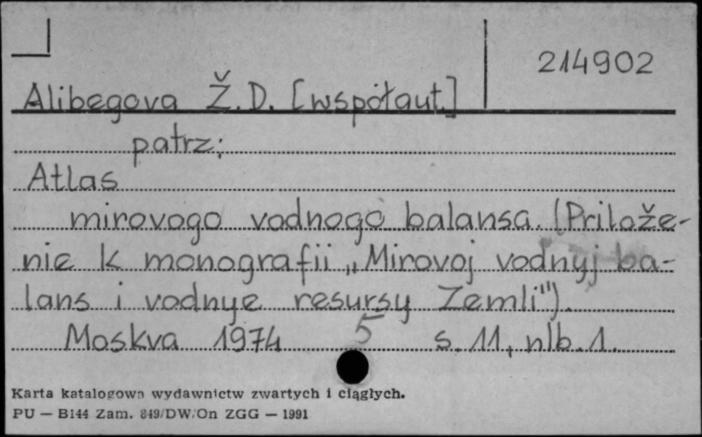 214902
Alibegova Ž.D. [współaut.]
patrz:
Atlas
mirovogo vodnogo balansa. (Prilože-
nie k monografii „Mirovoj vodnyj ba-
lans i vodnye resursy Zemli").
Moskva 1974 5 s. 11, nlb. 1.
Karta katalogowa wydawnictw zwartych i ciągłych.
PU — B144 Zam. 849/DW/On ZGG — 1991